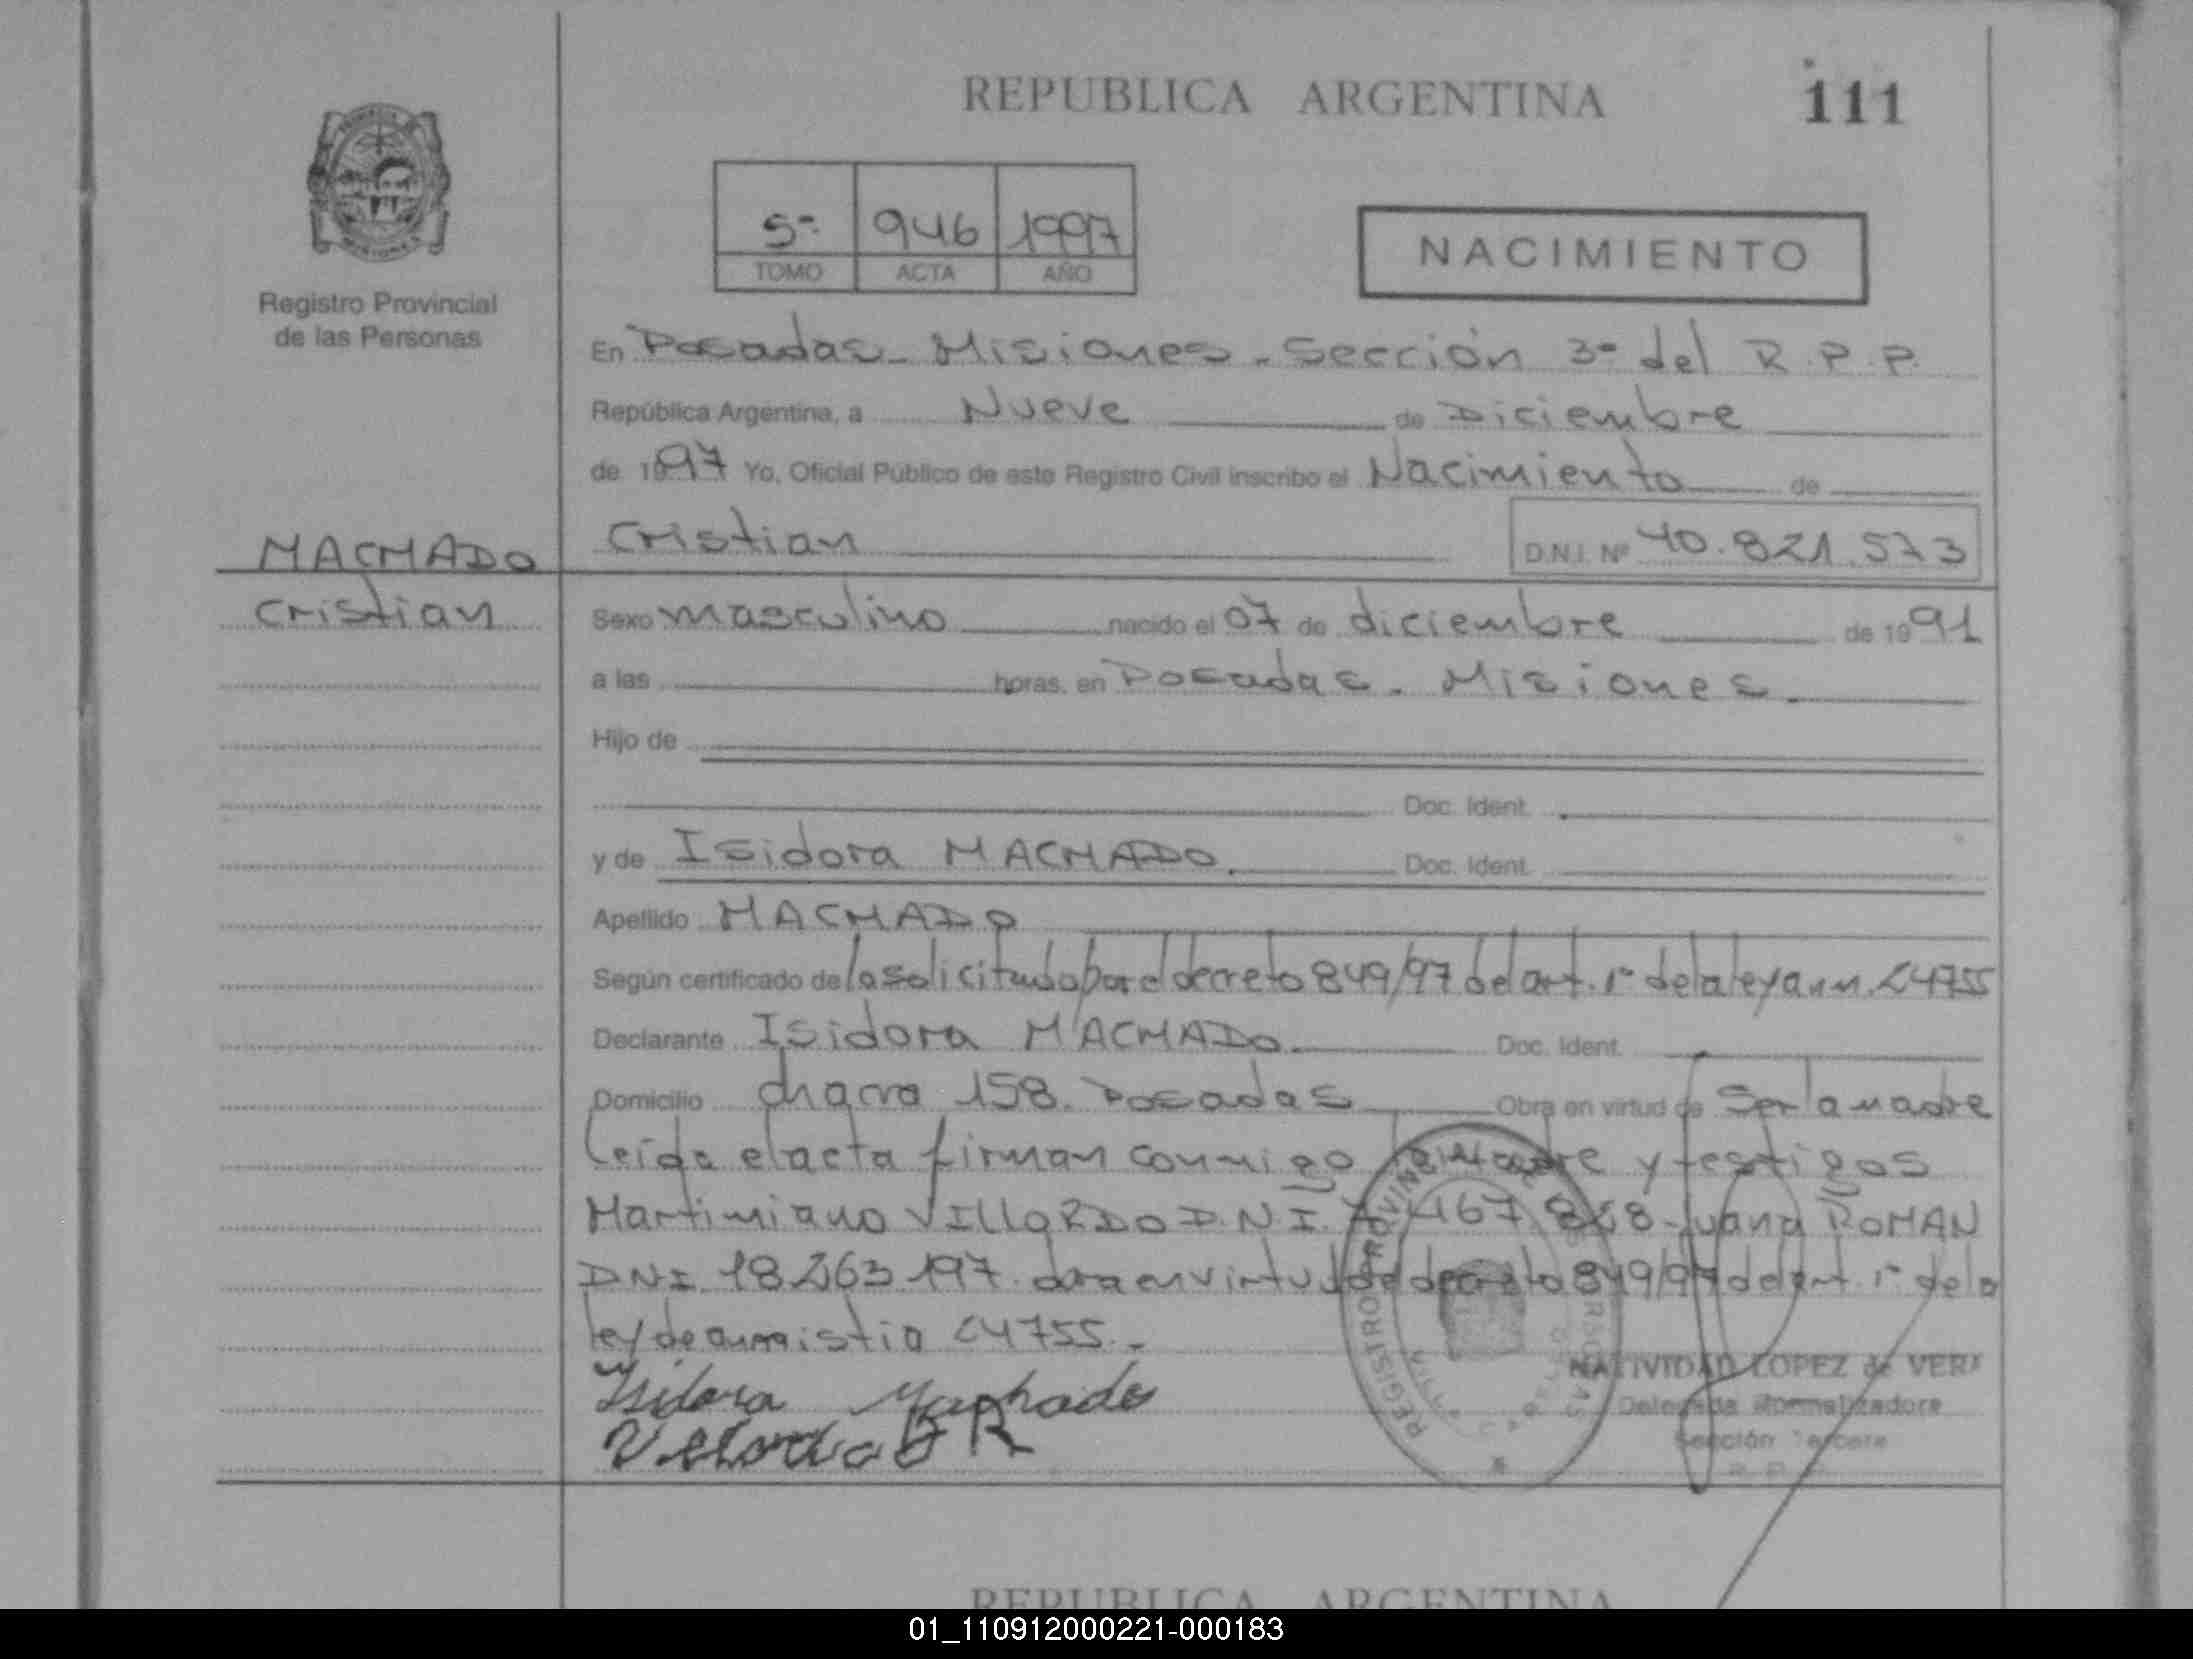 REPUBLICA ARGENTINA
111
5º 946 1997
TOMO ACTA AÑO
NACIMIENTO
Registro Provincial
de las Personas
En Posadas - Misiones - Sección 3º del R.P.P.
República Argentina, a Nueve de Diciembre
de 1997 Yo, Oficial Público de este Registro Civil inscribo el Nacimiento de
MACHADO
Cristian
Cristian D.N.I. Nº 40.821.573
Sexo masculino nacido el 07 de diciembre de 1991
a las horas, en Posadas - Misiones.
Hijo de
Doc. Ident.
y de Isidora MACHADO. Doc. Ident.
Apellido MACHADO
Según certificado de la solicitud por el decreto 849/97 del art. 1º de la ley 24755
Declarante Isidora MACHADO. Doc. Ident.
Domicilio chacra 158. Posadas Obra en virtud de Ser la madre
Leída el acta firman conmigo y testigos
Martimiano D.N.I. Juana ROMAN
DNI 18.263.197. en virtud de decreto 849/97 del art. 1º de la
ley de amnistia 24755.-
Isidora Machado
REGISTRO PROVINCIAL
NATIVIDAD LOPEZ de VERA
Delegada Normalizadora
Sección Tercera
R. P. P.
REPUBLICA ARGENTINA
01_110912000221-000183